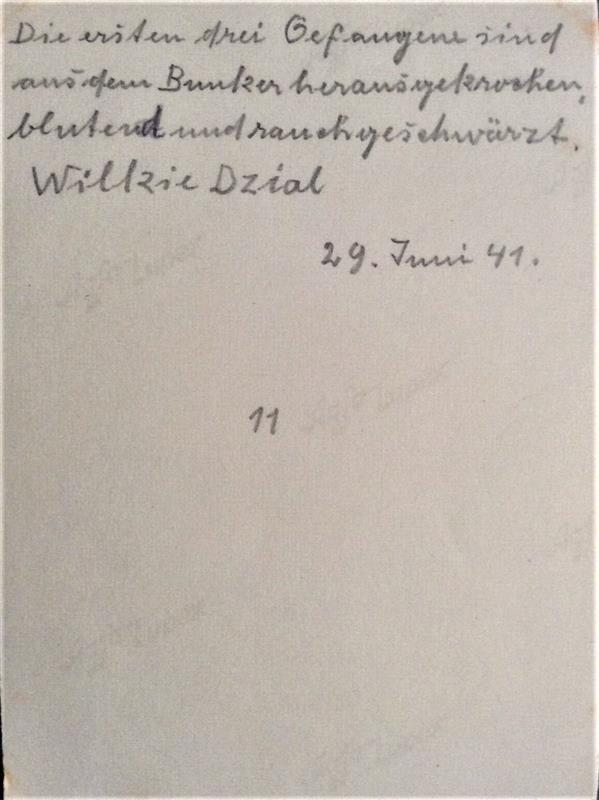 Die ersten drei Gefangene sind
aus dem Bunker herausgekrochen,
blutend und rauchgeschwärzt.
Wilkie Dzial
29. Juni 41.
11